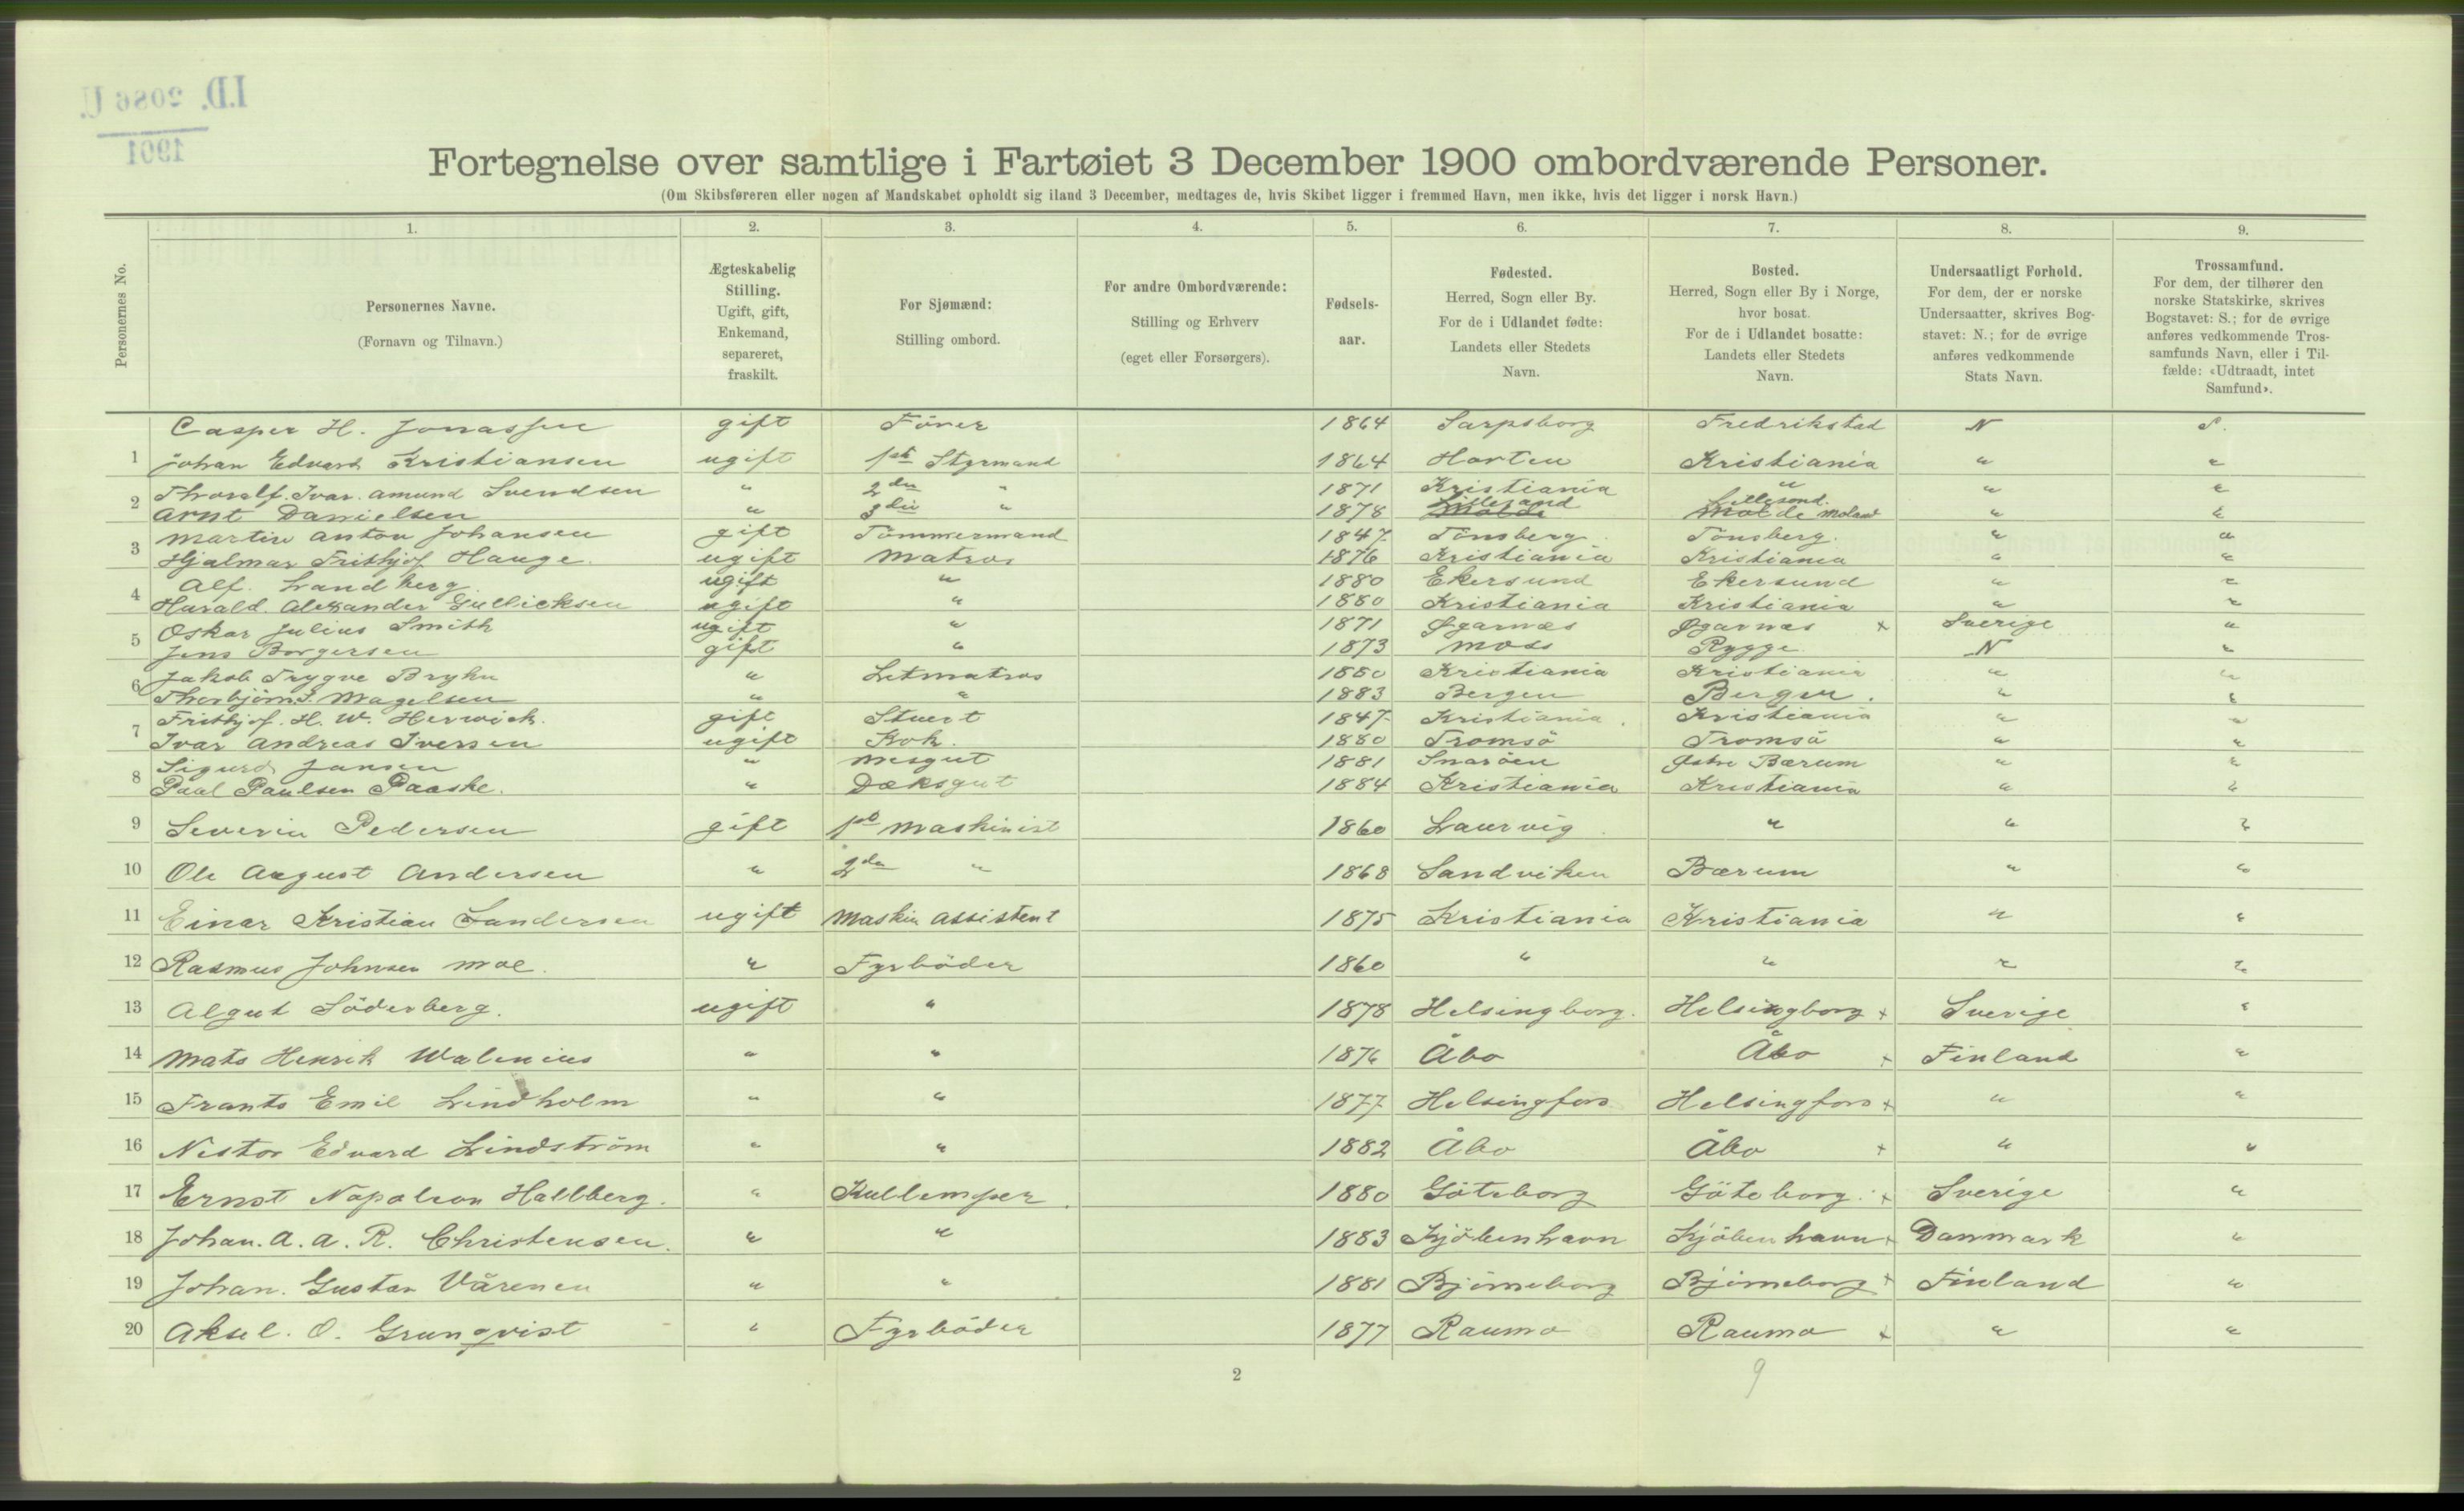 I.D. 2086 U.
1901
Fortegnelse over samtlige i Fartøiet 3 December 1900 ombordværende Personer.
(Om Skibsføreren eller nogen af Mandskabet opholdt sig iland 3 December, medtages de, hvis Skibet ligger i fremmed Havn, men ikke, hvis det ligger i norsk Havn.)
Personernes No.
1. 2. 3. 4. 5. 6. 7. 8. 9.
Personernes Navne.
(Fornavn og Tilnavn.)
Ægteskabelig
Stilling.
Ugift, gift,
Enkemand,
separeret,
fraskilt.
For Sjømænd:
Stilling ombord.
For andre Ombordværende:
Stilling og Erhverv
(eget eller Forsørgers).
Fødsels-
aar.
Fødested.
Herred, Sogn eller By.
For de i Udlandet fødte:
Landets eller Stedets
Navn.
Bosted.
Herred, Sogn eller By i Norge,
hvor bosat.
For de i Udlandet bosatte:
Landets eller Stedets
Navn.
Undersaatligt Forhold.
For dem, der er norske
Undersaatter, skrives Bog-
stavet: N.; for de øvrige
anføres vedkommende
Stats Navn.
Trossamfund.
For dem, der tilhører den
norske Statskirke, skrives
Bogstavet: S.; for de øvrige
anføres vedkommende Tros-
samfunds Navn, eller i Til-
fælde: «Udtraadt, intet
Samfund».
Casper H. Jonassen gift Förer 1864 Sarpsborg Fredrikstad N S.
1 Johan Edvard Kristiansen ugift 1ste Styrmand 1864 Horten Kristiania " "
2 Thoralf. Ivar. Amund Svendsen " 2den " 1871 Kristiania " " "
Arnt Danielsen " 3die " 1878 Lillesand Molde Lillesand. Molde Moland " "
3 Martin Anton Johansen gift Tömmermand 1847 Tönsberg. Tönsberg. " "
Hjalmar Frithjof Hauge. ugift Matros 1876 Kristiania Kristiania " "
4 Alf. Landberg ugift " 1880 Ekersund Ekersund " "
Harald. Alexander Gullicksen ugift " 1880 Kristiania Kristiania " "
5 Oskar Julius Smith ugift " 1871 Øgarnæs Øgarnæs x Sverige "
Jens Borgersen gift " 1873 Moss Rygge N "
6 Jakob Trygve Bryhn " Letmatros 1880 Kristiania Kristiania " "
Thorbjörn S. Magelsen " " 1883 Bergen Bergen. " "
7 Frithjof. H. W. Herwich. gift Stuert 1847 Kristiania. Kristiania " "
Ivar Andreas Iversen ugift Kok. 1880 Tromsö Tromsö " "
8 Sigurd Jansen " Mesgut 1881 Snaröen Østre Bærum " "
Paal Paulsen Paaske. " Dæksgut 1884 Kristiania Kristiania " "
9 Severin Pedersen gift 1ste Maskinist 1860 Laurvig " " "
10 Ole August Andersen " 2den " 1868 Sandviken Bærum " "
11 Einar Kristian Sandersen ugift Maskin Assistent 1875 Kristiania Kristiania " "
12 Rasmus Johnsen Moe. " Fyrböder 1860 " " " "
13 Algut Söderberg. ugift " 1878 Helsingborg. Helsingborg x Sverige "
14 Mats Henrik Walenius " " 1876 Åbo Åbo x Finland "
15 Frants Emil Lindholm " " 1877 Helsingfors Helsingfors x " "
16 Nestor Edvard Lindström " " 1882 Åbo Åbo x " "
17 Ernst Napoleon Hallberg. " Kullemper. 1880 Göteborg Göteborg. x Sverige "
18 Johan. A. A. R. Christensen. " " 1883 Kjöbenhavn Kjöbenhavn x Danmark "
19 Johan. Gustav Vårenen " " 1881 Björneborg Björneborg x Finland "
20 Aksel. O. Grunqvist " Fyrböder 1877 Raumo Raumo x " "
2
9